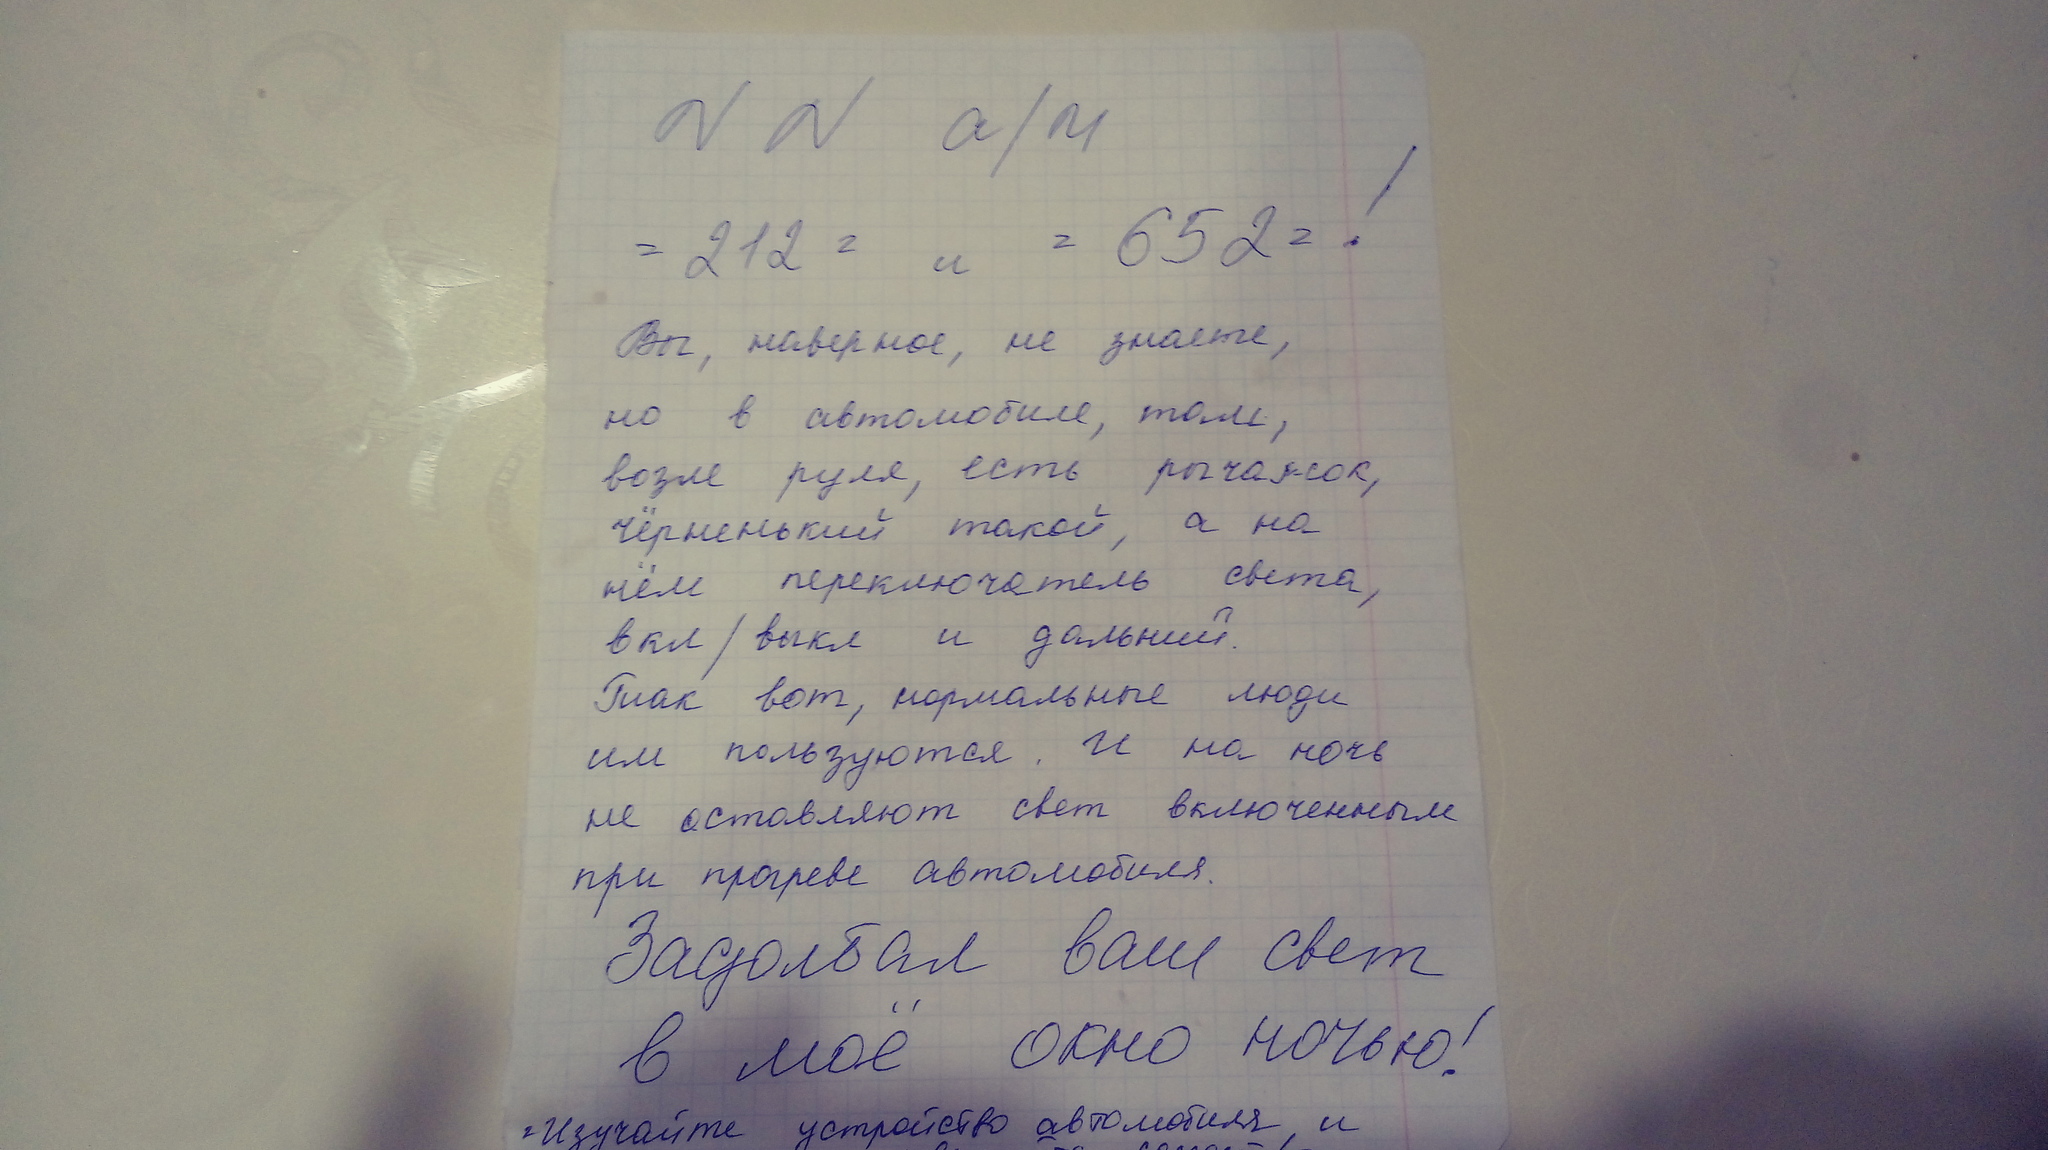 NN а/м
=212= и =652=!
Вы, наверное, не знаете,
но в автомобиле, там,
возле руля, есть рычажок,
чёрненький такой, а на
нём переключатель света,
вкл/выкл и дальний.
Так вот, нормальные люди
им пользуются. И на ночь
не оставляют свет включенным
при прогреве автомобиля.
Задолбал ваш свет
в моё окно ночью!
=Изучайте устройство автомобиля, и